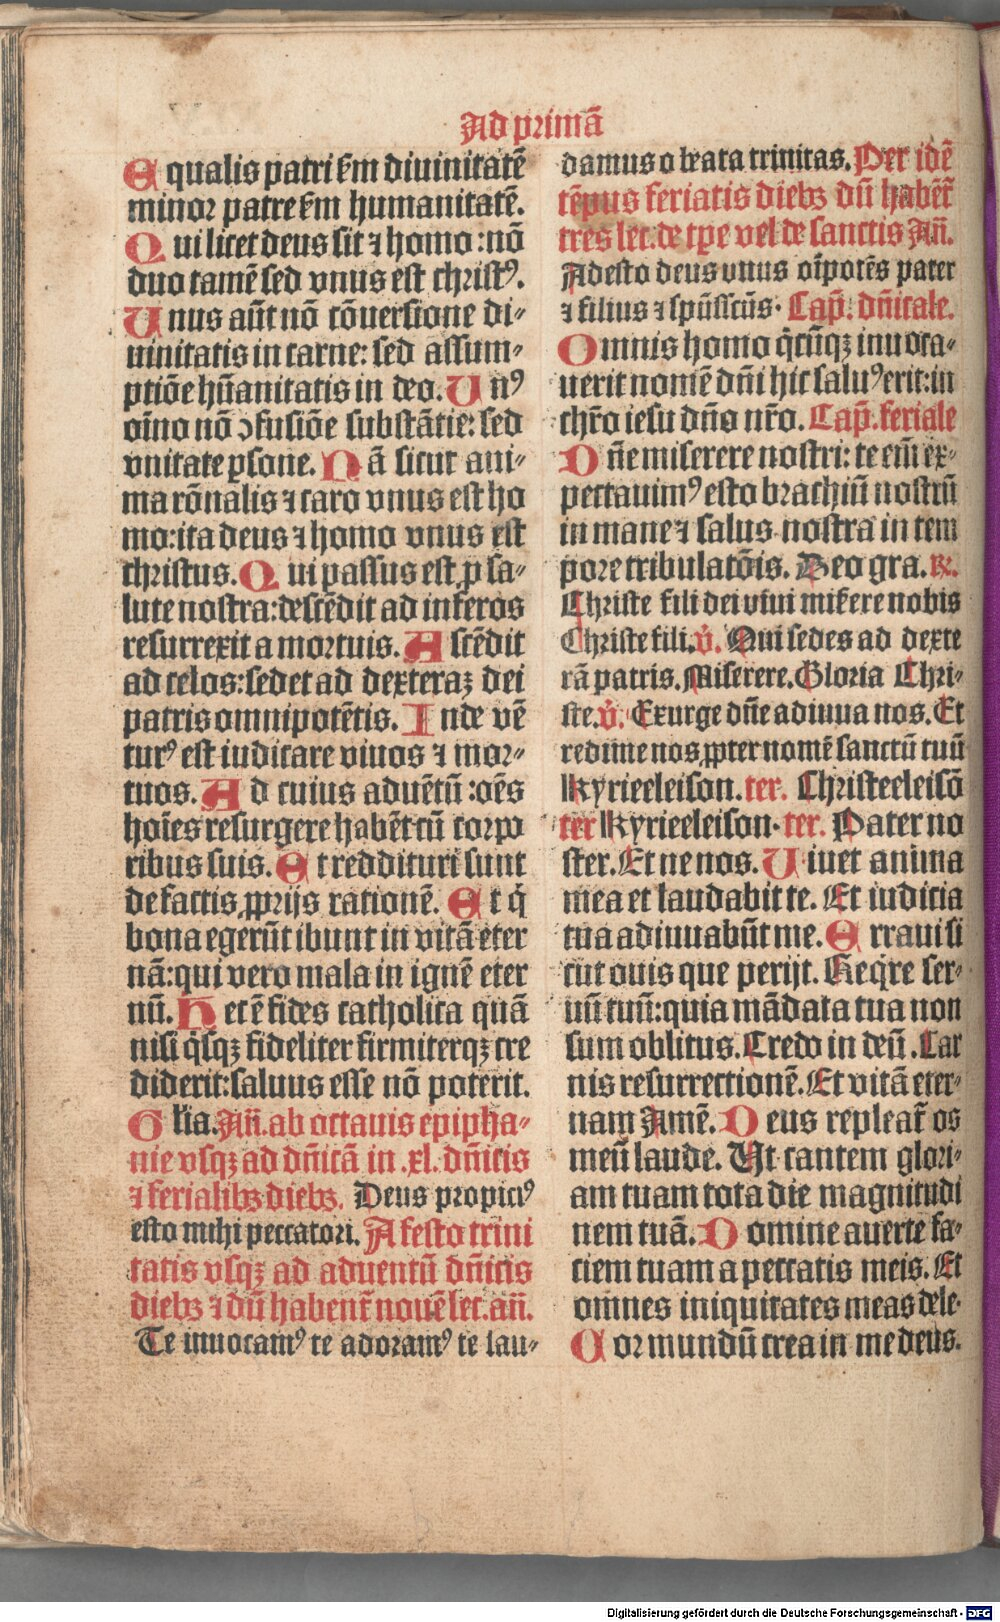 Ad primā
Equalis patri ẜm diuinitatē
minor patre ẜm humanitatē.
Qui licet deus sit ⁊ homo: nō
duo tamē sed vnus est christꝰ.
Unus aūt nō cōuersione di-
uinitatis in carne: sed assum-
ptiōe hūanitatis in deo. Unꝰ
oīno nō ɔfusiōe substātie: sed
vnitate ꝑsone. Nā sicut ani-
ma rōnalis ⁊ caro vnus est ho
mo: ita deus ⁊ homo vnus est
christus. Qui passus est ꝓ sa-
lute nostra: descēdit ad inferos
resurrexit a mortuis. Ascēdit
ad celos: sedet ad dexteraꝫ dei
patris omnipotētis. Inde vē
turꝰ est iudicare viuos ⁊ mor-
tuos. Ad cuius aduētū: oēs
hoīes resurgere habēt cū corpo
ribus suis. Et reddituri sunt
de factis ꝓprijs rationē. Et q̇
bona egerūt ibunt in vitā eter
nā: qui vero mala in ignē eter
nū. Hec ē fides catholica quā
nisi q̇sqꝫ fideliter firmiterqꝫ cre
diderit: saluus esse nō poterit.
Glīa. Añ. ab octauis epipha-
nie vsqꝫ ad dn̄icā in .xl. dn̄icis
⁊ ferialibꝫ diebꝫ. Deus propiciꝰ
esto mihi peccatori. A festo trini
tatis vsqꝫ ad aduentū dn̄icis
diebꝫ ⁊ dū habent̄ nouē lec. añ.
Te inuocamꝰ te adoramꝰ te lau-
damus o beata trinitas. Per idē
tēpus feriatis diebꝫ dū habēt̄
tres lec. de tꝑe vel de sanctis Añ.
Adesto deus vnus oīpotēs pater
⁊ filius ⁊ spūssctūs. Cap̄. dn̄icale.
Omnis homo q̇cūqꝫ inuoca-
uerit nomē dn̄i hic saluꝰ erit: in
chr̄o iesu dn̄o nr̄o. Cap̄. feriale
Dn̄e miserere nostri: te em̄ ex-
pectauimꝰ esto brachiū nostrū
in mane ⁊ salus nostra in tem
pore tribulatōis. Deo gra. ℟.
Christe fili dei viui miſere nobis
Christe fili. ℣. Qui sedes ad dexte
rā patris. Miserere. Gloria Chri-
ste. ℣. Exurge dn̄e adiuua nos. Et
redime nos ꝓpter nomē sanctū tuū
Kyrieeleison. ter. Christeeleisō
ter Kyrieeleison. ter. Pater no
ster. Et ne nos. Uiuet anima
mea et laudabit te. Et iudicia
tua adiuuabūt me. Erraui si
cut ouis que perijt. Req̇re ser-
uū tuū: quia mādata tua non
sum oblitus. Credo in deū. Car
nis resurrectionē. Et vitā eter-
nam Amē. Deus repleat̄ os
meū laude. Ut cantem glori-
am tuam tota die magnitudi
nem tuā. Domine auerte fa-
ciem tuam a peccatis meis. Et
om̄nes iniquitates meas dele.
Cor mundū crea in me deus.
Digitalisierung gefördert durch die Deutsche Forschungsgemeinschaft - DFG